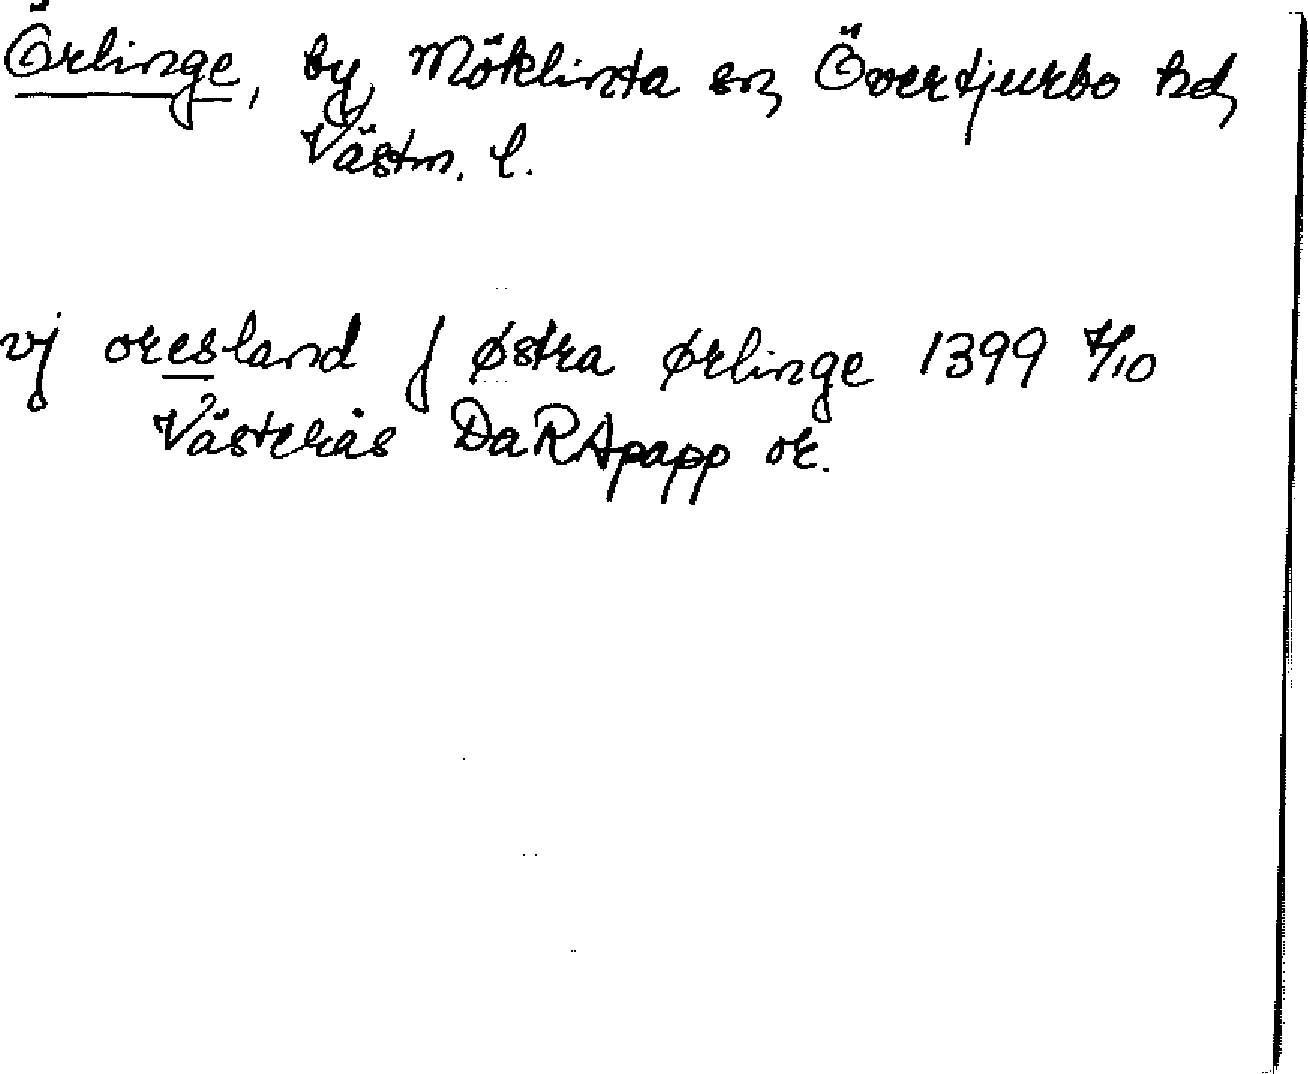 Örlinge, by, Möklinta sn, Övertjurbo hd,
Västm. l.
vj øresland j østra ørlinge 1399 7/10
Västerås DaRApapp or.